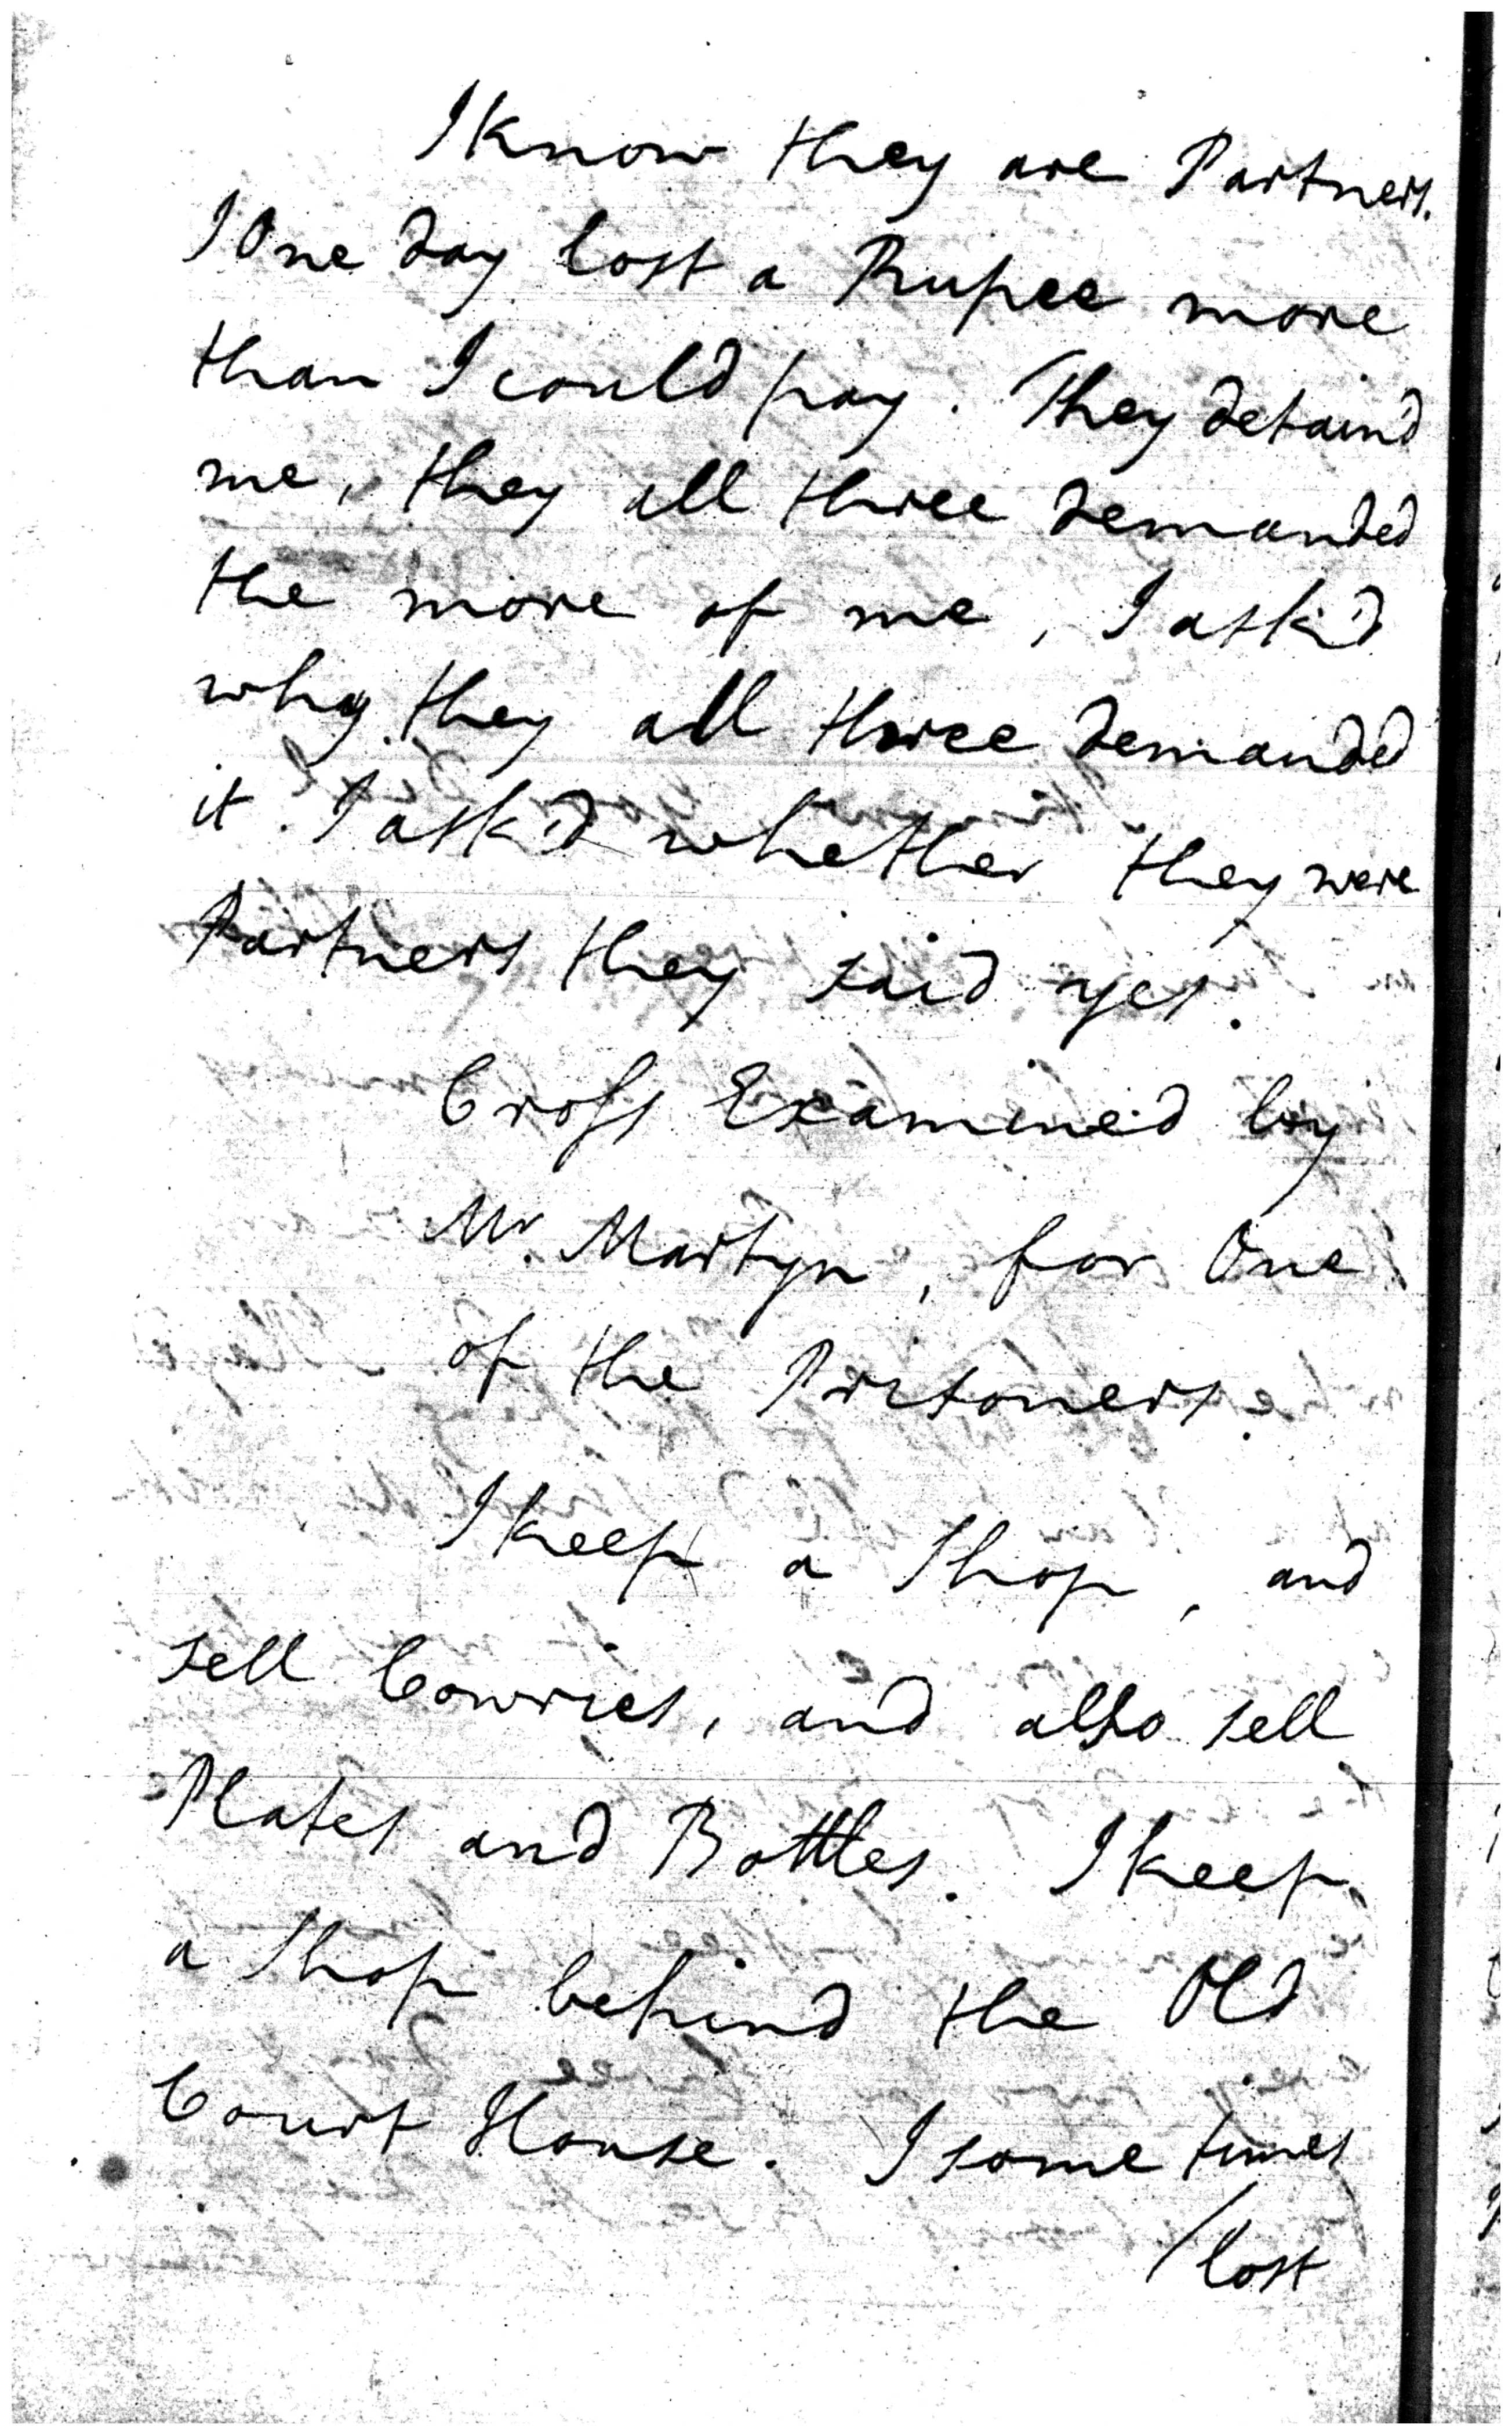 I know they are Partners.
I One day lost a Rupee more
than I could pay. They detain'd
me, they all three demanded
the more of me, I ask'd
why they all three demanded
it. I ask'd whether they were
Partners they said yes.
Cross Examined by
Mr. Martyn, for One
of the Prisoners.
I keep a Shop, and
sell Cowries, and also sell
Plates and Bottles. I keep
a Shop behind the Old
Court House. I some times
/lost